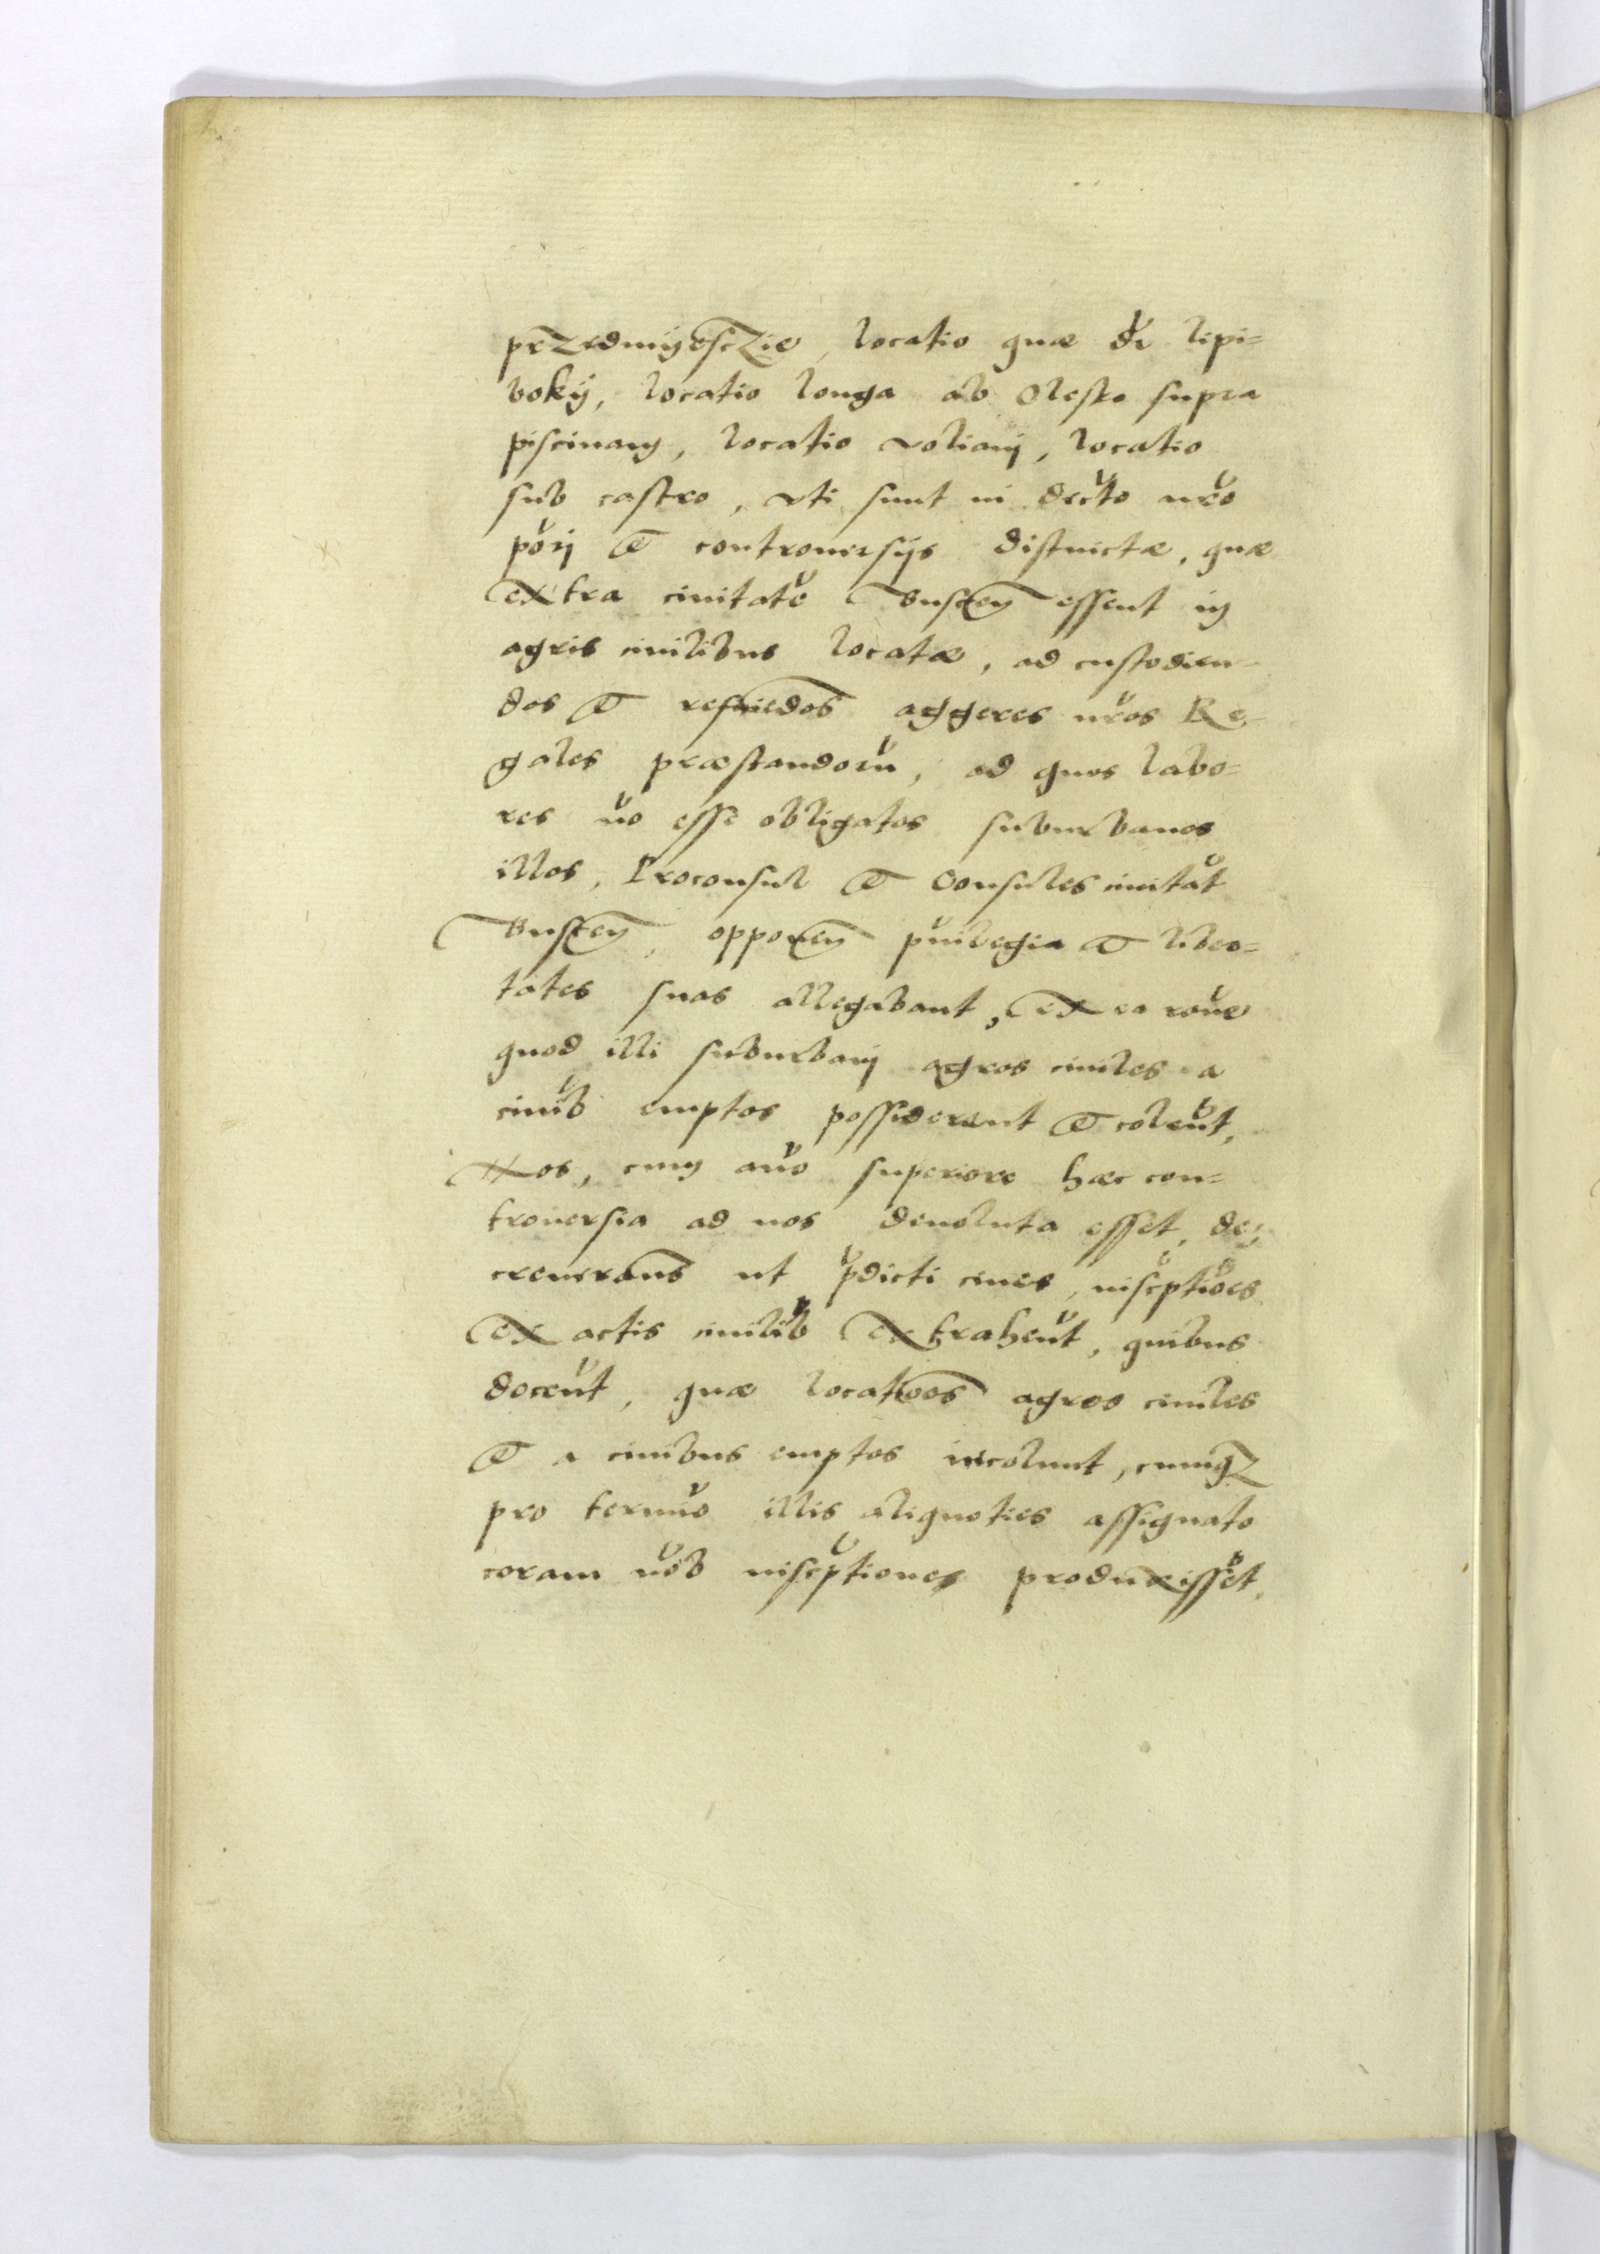 przedmyesczie, locatio quæ dr lipi=
boky, locatio longa ab Olesko supra
piscinam, locatio voliani, locatio
sub castro, vti sunt in decto nro
pori et controuersijs distinctæ, quæ
extra ciuitate Buscen essent in
agris ciuilibus locatæ, ad custodien-
dos et reficiedos aggeres nros Re-
gales præstandoru, ad quos labo=
res no esse obligatos suburbanos
illos, Proconsul et Consules ciuitat
Buscen, opponen priuilegia et liber=
tates suas allegabant, ex ea roue
quod illi suburbani agros ciuiles a
ciuib emptos possiderent et colerut,
Nos, cum ano superiore hæc con=
trouersia ad nos deuoluta esset, de,
creuerams ut pdicti ciues, inscptioes
ex actis ciuilib extraherut, quibus
docerut, quæ locatioes agros ciuiles
et a ciuibus emptos incolunt, cumqz
pro termio illis aliquoties assignato
coram nob inscrptiones produxisset,